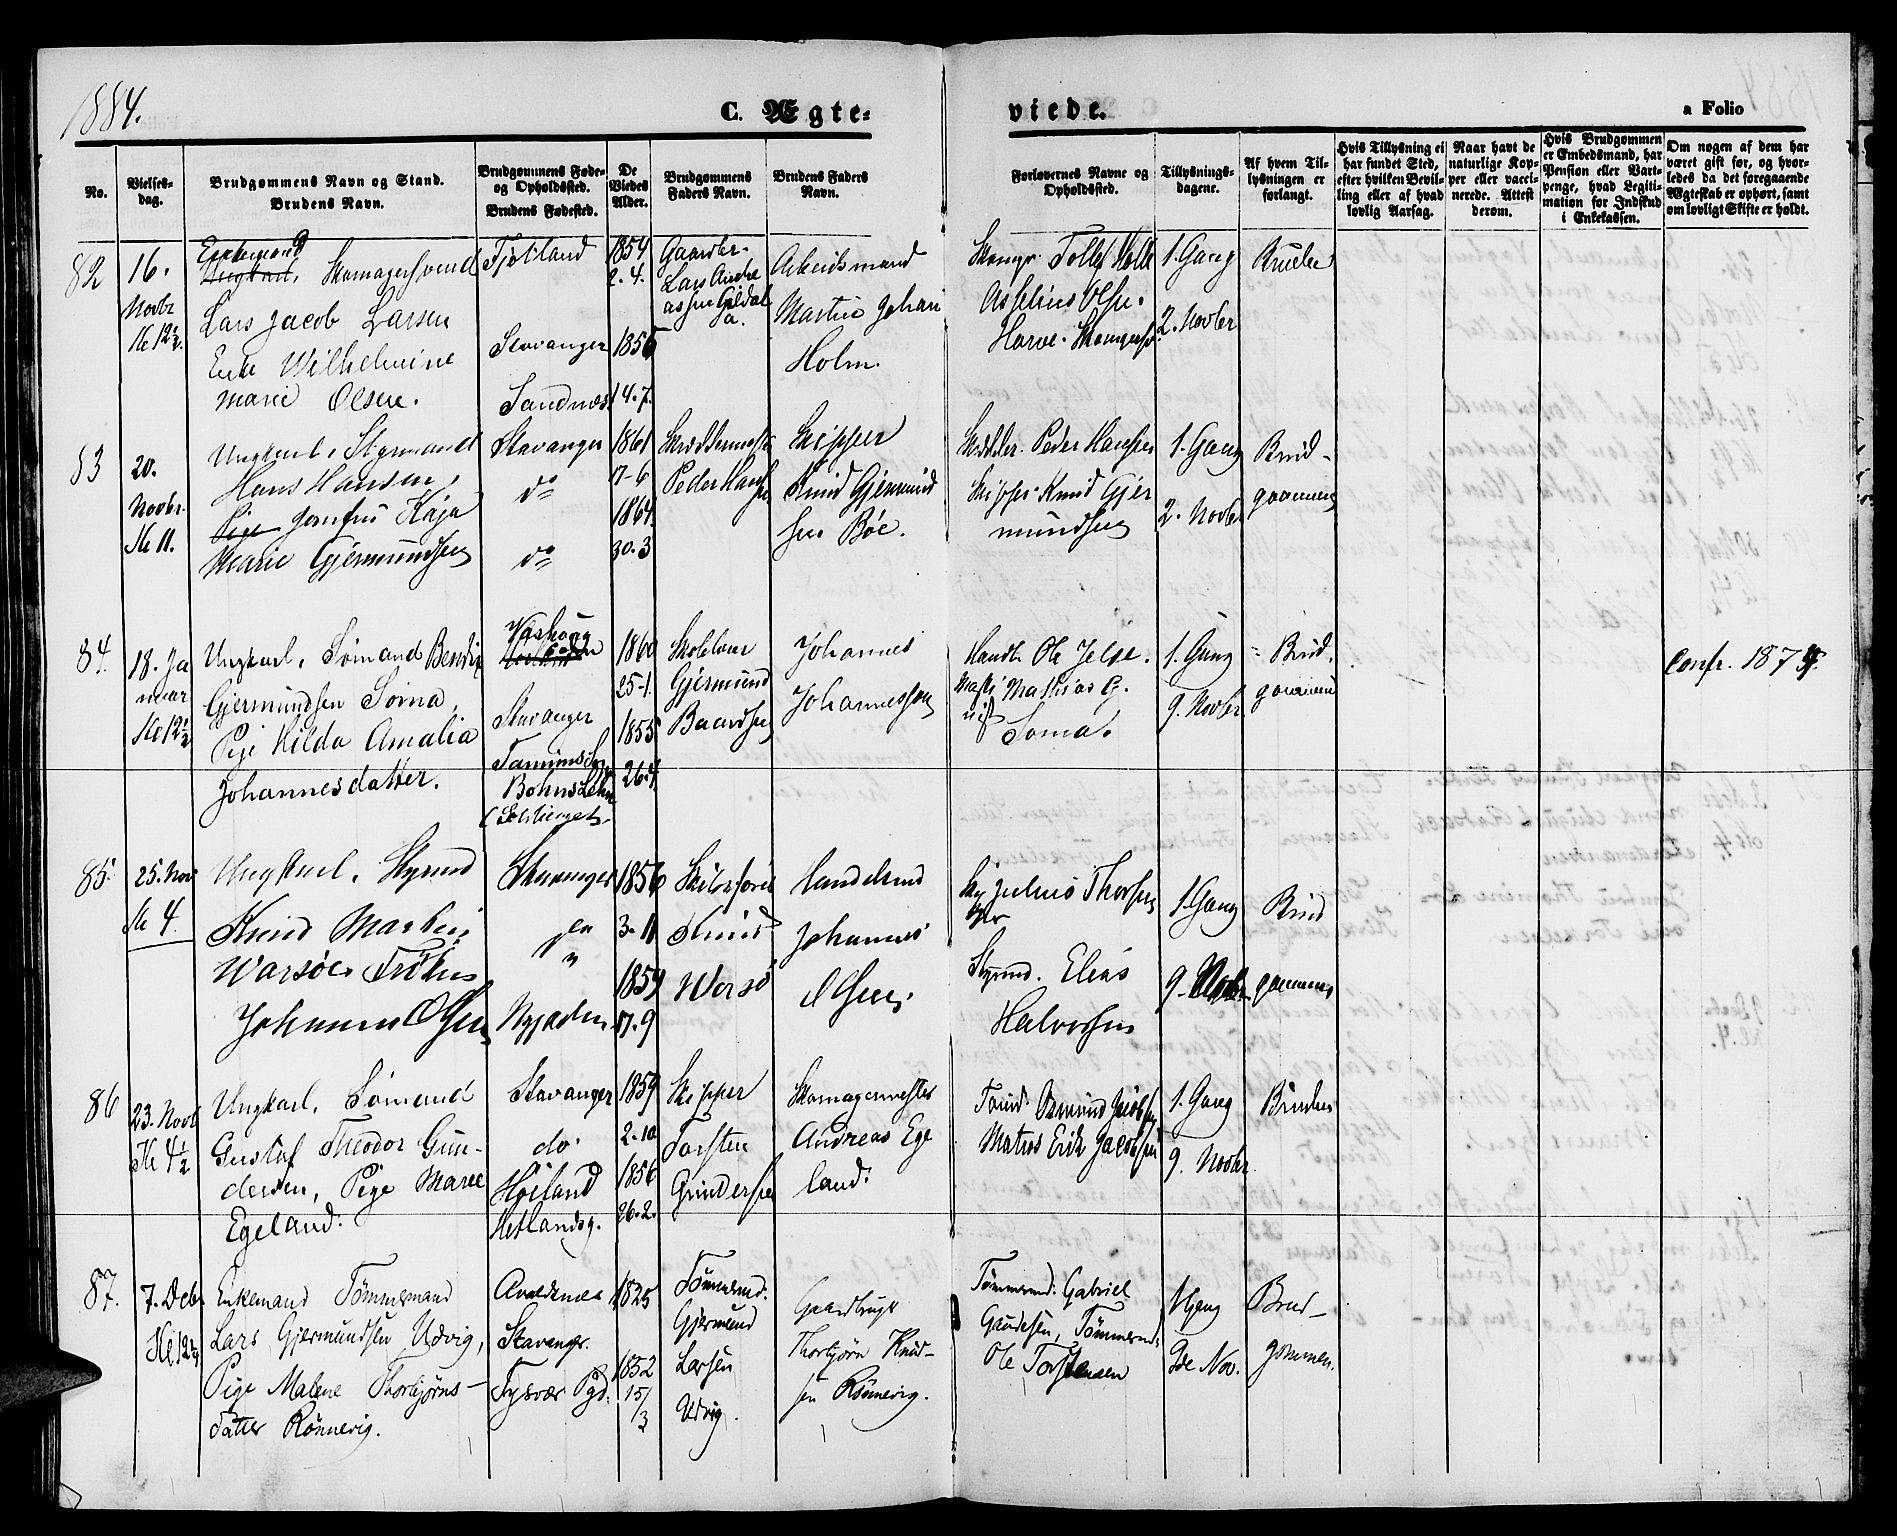 1884.
C. Ægte-
viede.
a Folio
No.
Vielses-
dag.
Brudgommens Navn og Stand.
Brudens Navn.
Brudgommens Føde-
og Opholdssted.
Brudens Fødested.
De
Viedes
Alder.
Brudgommens
Faders Navn.
Brudens Faders
Navn.
Forlovernes Navne og
Opholdssted.
Tillysnings-
dagene.
Af hvem Til-
lysningen er
forlangt.
Hvis Tillysning ei
har fundet Sted,
efter hvilken Bevil-
ling eller af hvad
lovlig Aarsag.
Naar havt de
naturlige Kop-
per eller vacci-
nerede. Attest
derom.
Hvis Brudgommen
er Embedsmand, har
Pension eller Vart-
penge, hvad Legiti-
mation for Indskud
i Enkekassen.
Om nogen af dem har
været gift før, og hvor-
ledes da det foregaaende
Ægteskab er ophørt, samt
om lovligt Skifte er holdt.
82
16.
Novbr
Kl 12½.
Enkemand
Ungkarl, Skomagersvend
Lars Jacob Larsen
Enke Wilhelmine
Marie Olsen.
Fjotland
Stavanger
Sandnes
1854
2. 4.
1856
14.7.
Gaardbr.
Lars Andre
assen
Arbeidsmand
Martin Johan
Holm.
Skomgr. Tollef Holle
Asselius Olsen.
1. Gang
2. Novber
Bruden
83
20.
Novbr.
Kl 11.
Ungkarl, Styrmand
Hans Hansen,
Pige Jomfru Kaja
Marie Gjermundsen
Stavanger
do
do
1861
17-6
1864
30.3
Skræddermester
Peder Hansen
Skipper
Knud Gjermund
sen Bøe.
Skrædder. Peder Hansen
Skipper Knud Gjer
mundsen
1. Gang
2. Novbr
Brud-
gommen
84.
18. Ja
nuar
Kl 12½
Ungkarl, Sømand Bendix
Gjermundsen Soma,
Pige Hilda Amalia
Johannesdatter.
Stavanger
Bohus Lehn
1860
25-1.
1855
26.4.
Skolelærer
Gjermund
Baardsen
Johannes
Johannessen
Handl. Ole Jelse.
Mathias G.
Soma.
1. Gang
9. Novber
Brud.
gommen
Confr. 1875.
85.
25. Nov
Kl 4.
Ungkarl. Styrmd
Knud Martin
Warsøe, Frøken
Johanne Olsen
Stavanger
Nyjæder
1856
3-11
1859
17.9
Skibsfører
Knud
Worsø
Handelsmd
Johannes
Olsen.
Julius Thorsen
Styrmd. Elias
Halvorsen
1. Gang
9. Novbr
Brud
gommen
86
23. Novb
Kl 4½
Ungkarl, Sømand
Gustaf Theodor Gun-
dersen, Pige Maree
Egeland.
Stavanger
do.
Høiland
Hetlandsg.
1859
2-10
1856
26.2.
Skipper
Torsten
Gundersen
Skomagermester
Andreas Ege
land.
Osmund Jacobsen
Matros Erik Jacobsen
1. Gang
9. Novbr.
Bruden
87.
7. Debr
Kl 12½
Enkemand Tømmermand
Lars Gjermundsen Udvig,
Pige Malene Thorbjørns-
datter Rønnevig.
Avaldsnes
Stavanger.
Tysvær Pgd.
1825
1852
15/3
Tømmermd.
Gjermund
Larsen
Udvig.
Gaardbruger
Thorbjørn Knud-
sen Rønnevig.
Tømmermd. Gabriel
Gaudesen, Tømmermd.
Ole Torstensen
1 Gang
9de Nov.
Brud-
gommen.